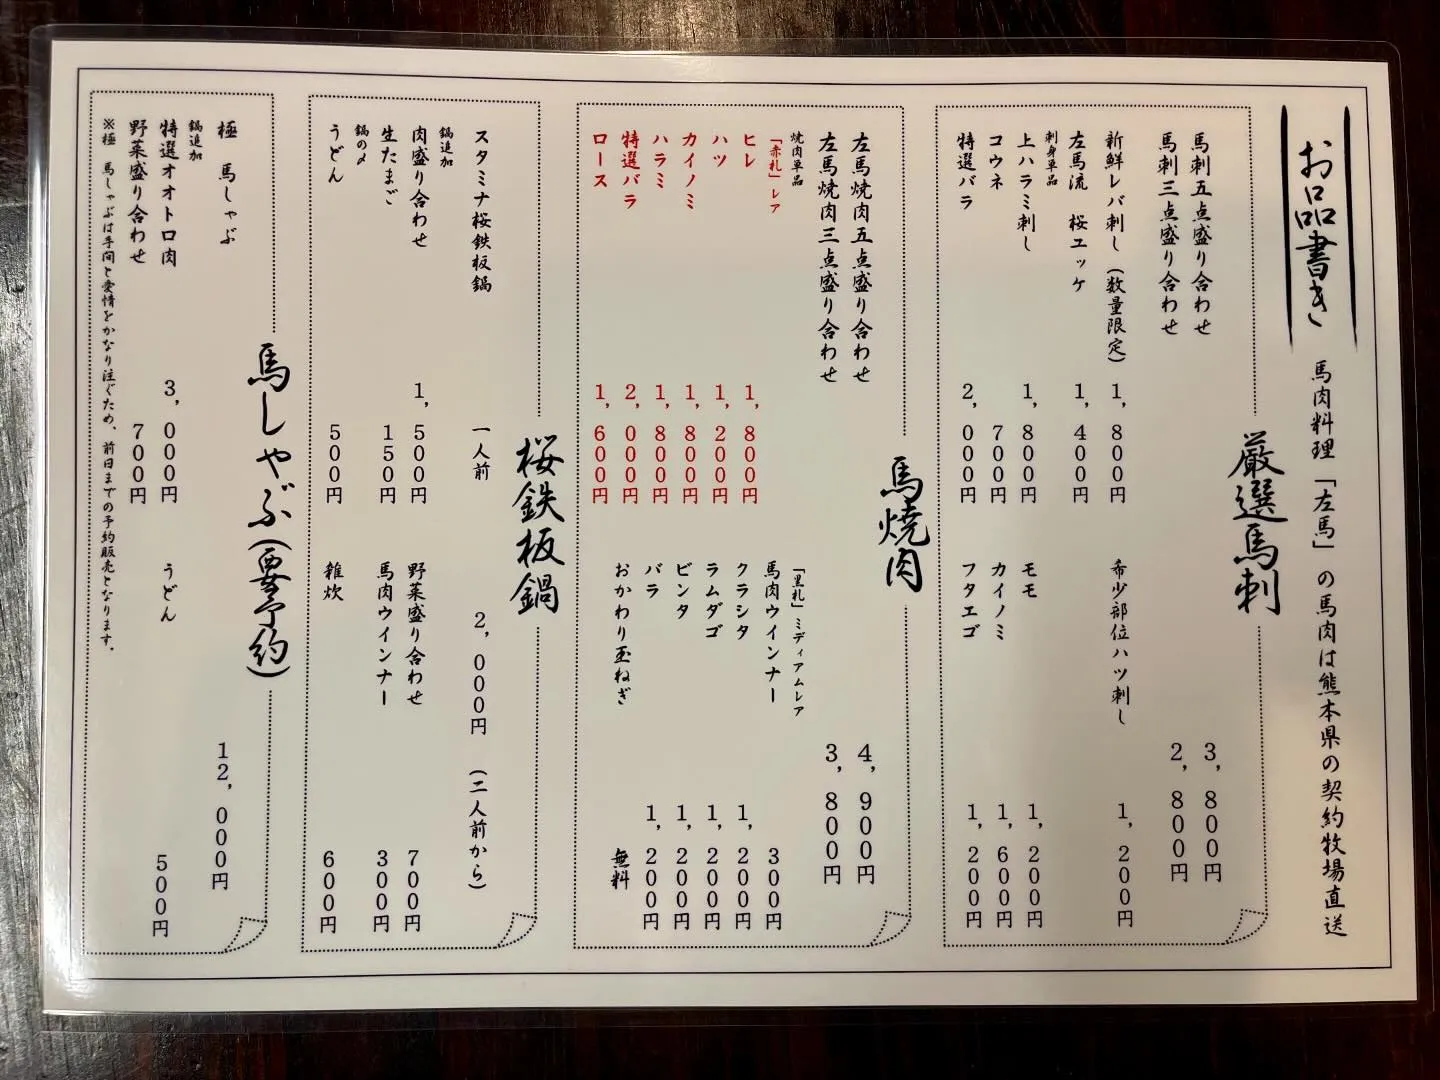 お品書き
馬肉料理「左馬」の馬肉は熊本県の契約牧場直送
厳選馬刺
馬刺五点盛り合わせ 3,800円
馬刺三点盛り合わせ 2,800円
新鮮レバ刺し(数量限定) 1,800円
希少部位ハツ刺し 1,200円
左馬流 桜ユッケ 1,400円
刺身単品
上ハラミ刺し 1,800円
モモ 1,200円
コウネ 700円
カイノミ 1,600円
特選バラ 2,000円
フタエゴ 1,200円
馬焼肉
左馬焼肉五点盛り合わせ 4,900円
左馬焼肉三点盛り合わせ 3,800円
焼肉単品
「赤札」レア
「黒札」ミディアムレア
ヒレ 1,800円
馬肉ウインナー 300円
ハツ 1,200円
クラシタ 1,200円
カイノミ 1,800円
ラムダゴ 1,200円
ハラミ 1,800円
ビンタ 1,200円
特選バラ 2,000円
バラ 1,200円
ロース 1,600円
おかわり玉ねぎ 無料
桜鉄板鍋
スタミナ桜鉄板鍋 一人前 2,000円 (二人前から)
鍋追加
肉盛り合わせ 1,500円
野菜盛り合わせ 700円
生たまご 150円
馬肉ウインナー 300円
鍋の〆
うどん 500円
雑炊 600円
馬しゃぶ(要予約)
極 馬しゃぶ 12,000円
鍋追加
特選オオトロ肉 3,000円
うどん 500円
野菜盛り合わせ 700円
※極 馬しゃぶは手間と愛情をかなり注ぐため、前日までの予約販売となります。